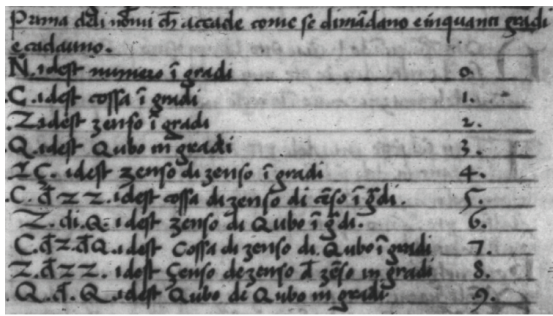 Prima delli nomi ch accade come se dimādano e in quanti gradi
e cadauno.
N. idest numero ī gradi 0.
C. idest cossa ī gradi 1.
Z idest zenso ī gradi 2.
Q idest Qubo in gradi 3.
Z Z. idest zenso di zenso ī gradi 4.
C. d Z Z. idest cossa di zenso di cēso ī g̃di. 5.
Z. di. Q. idest zenso di Qubo ī g̃di. 6.
C. d Z. d Q. idest Cossa di zenso di Qubo ī gradi 7.
Z. d Z Z. idest Censo de zenso d zēso in gradi 8.
Q. d. Q idest Qubo de Qubo in gradi 9.